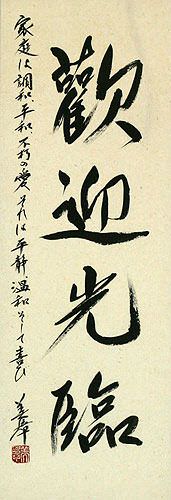 歡迎光臨
家庭は調和、平和、不朽の愛、それは平静、温和そして喜び